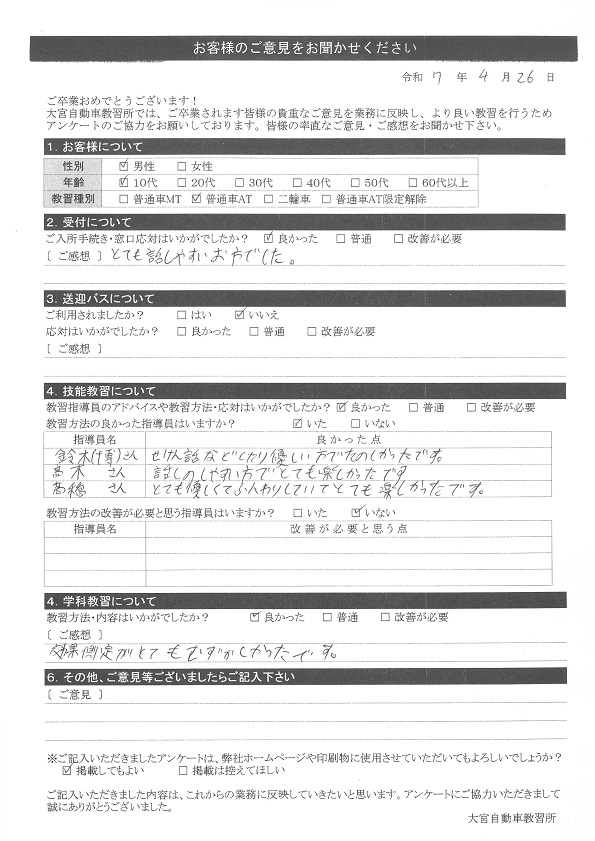 お客様のご意見をお聞かせください
令和 7 年 4 月 26 日
ご卒業おめでとうございます！
大宮自動車教習所では、ご卒業されます皆様の貴重なご意見を業務に反映し、より良い教習を行うため
アンケートのご協力をお願いしております。皆様の率直なご意見・ご感想をお聞かせ下さい。
1. お客様について
性別 ☑ 男性 □ 女性
年齢 ☑ 10代 □ 20代 □ 30代 □ 40代 □ 50代 □ 60代以上
教習種別 □ 普通車MT ☑ 普通車AT □ 二輪車 □ 普通車AT限定解除
2. 受付について
ご入所手続き・窓口応対はいかがでしたか？ ☑ 良かった □ 普通 □ 改善が必要
［ ご感想 ］とても話しやすいお方でした。
3. 送迎バスについて
ご利用されましたか？ □ はい ☑ いいえ
応対はいかがでしたか？ □ 良かった □ 普通 □ 改善が必要
［ ご感想 ］
4. 技能教習について
教習指導員のアドバイスや教習方法・応対はいかがでしたか？ ☑ 良かった □ 普通 □ 改善が必要
教習方法の良かった指導員はいますか？ ☑ いた □ いない
指導員名 良かった点
鈴木(博)さん せけん話などしたり優しい方でたのしかったです。
高木 さん 話しのしやすい方でとても楽しかったです
高橋 さん とても優しくてふんわりしていてとても楽しかったです。
教習方法の改善が必要と思う指導員はいますか？ □ いた ☑ いない
指導員名 改善が必要と思う点
4. 学科教習について
教習方法・内容はいかがでしたか？ ☑ 良かった □ 普通 □ 改善が必要
［ ご感想 ］
効果測定がとてもむずかしかったです。
6. その他、ご意見等ございましたらご記入下さい
［ ご意見 ］
※ご記入いただきましたアンケートは、弊社ホームページや印刷物に使用させていただいてもよろしいでしょうか？
☑ 掲載してもよい □ 掲載は控えてほしい
ご記入いただきました内容は、これからの業務に反映していきたいと思います。アンケートにご協力いただきまして
誠にありがとうございました。
大宮自動車教習所